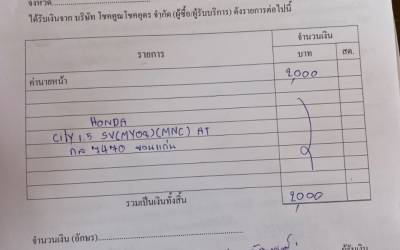 จังหวัด
ได้รับเงินจาก บริษัท โชคคูณโชคอุดร จำกัด (ผู้ซื้อ/ผู้รับบริการ) ดังรายการต่อไปนี้
รายการ จำนวนเงิน
บาท สต.
ค่านายหน้า 2,000
HONDA
City 1.5 SV(MY08)(MNC) AT
กล 7470 ขอนแก่น
รวมเป็นเงินทั้งสิ้น 2,000
จำนวนเงิน (อักษร)
ผู้รับเงิน